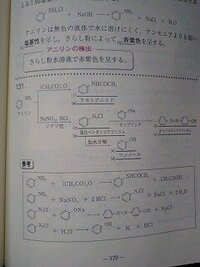 NH₃Cl + NaOH → NH₂ + NaCl + H₂O
アニリンは無色の液体で水に溶けにくく、アンモニアより弱い
塩基性を示し、さらし粉によって、赤紫色を呈する。
アニリンの検出
さらし粉水溶液で赤紫色を呈する。
131.
NH₂
(CH₃CO)₂O
NHCOCH₃
アセトアニリド
NaNO₂, HCl
ジアゾ化
N₂Cl
ONa
塩化ベンゼンジアゾニウム
カップリング
加水分解
OH
フェノール
参考
NH₂ + (CH₃CO)₂O → NHCOCH₃ + CH₃COOH
NH₂ + NaNO₂ + 2 HCl → N₂Cl + NaCl + 2 H₂O
N₂Cl + ONa → N=N OH + NaCl
N₂Cl + H₂O → OH + N₂ + HCl
— 179 —